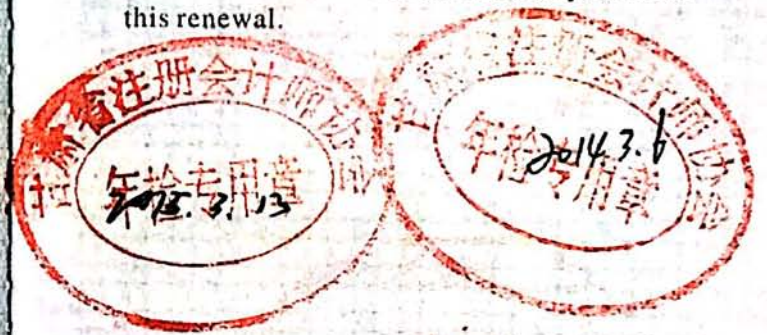 this renewal.
省注册会计师协会
年检专用章
2015.3.13
会计师协会
年检专用章
2014.3.6